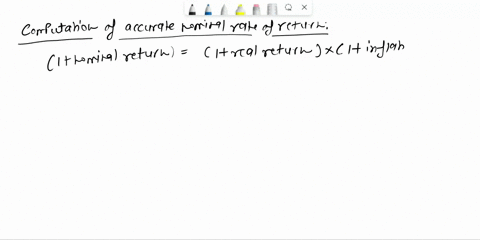 Computation of accurate nominal rate of return.
(1+nominal return) = (1+real return) × (1+inflah